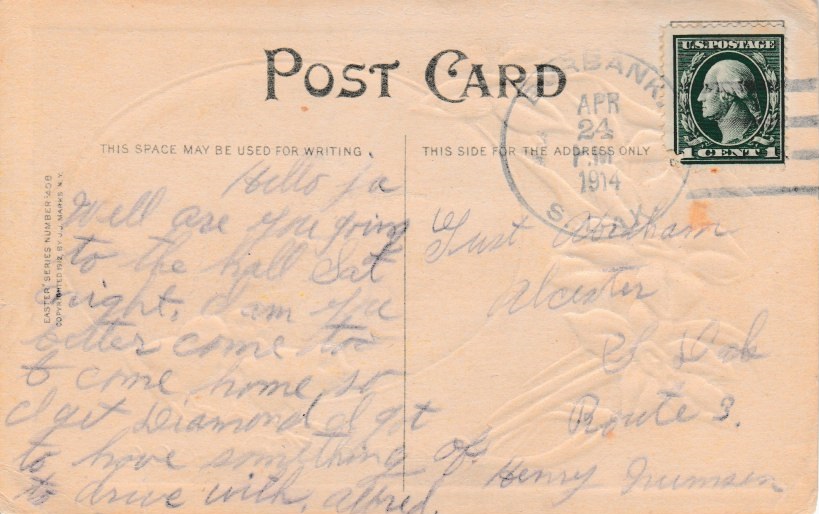 POST CARD
THIS SPACE MAY BE USED FOR WRITING.
THIS SIDE FOR THE ADDRESS ONLY
U.S. POSTAGE
1 CENT 1
BURBANK,
APR
24
P.M.
1914
S. DAK.
EASTER SERIES NUMBER
COPYRIGHTED 1912 BY J. J. MARKS N.Y.
Hello
Well are you going
to the ball Sat
night, I am you
better come too
& come home so
I get Diamond I got
to have something
to drive with, Alfred.
Gust Abraham
Alcester
S Dak
Route 3.
of Henry